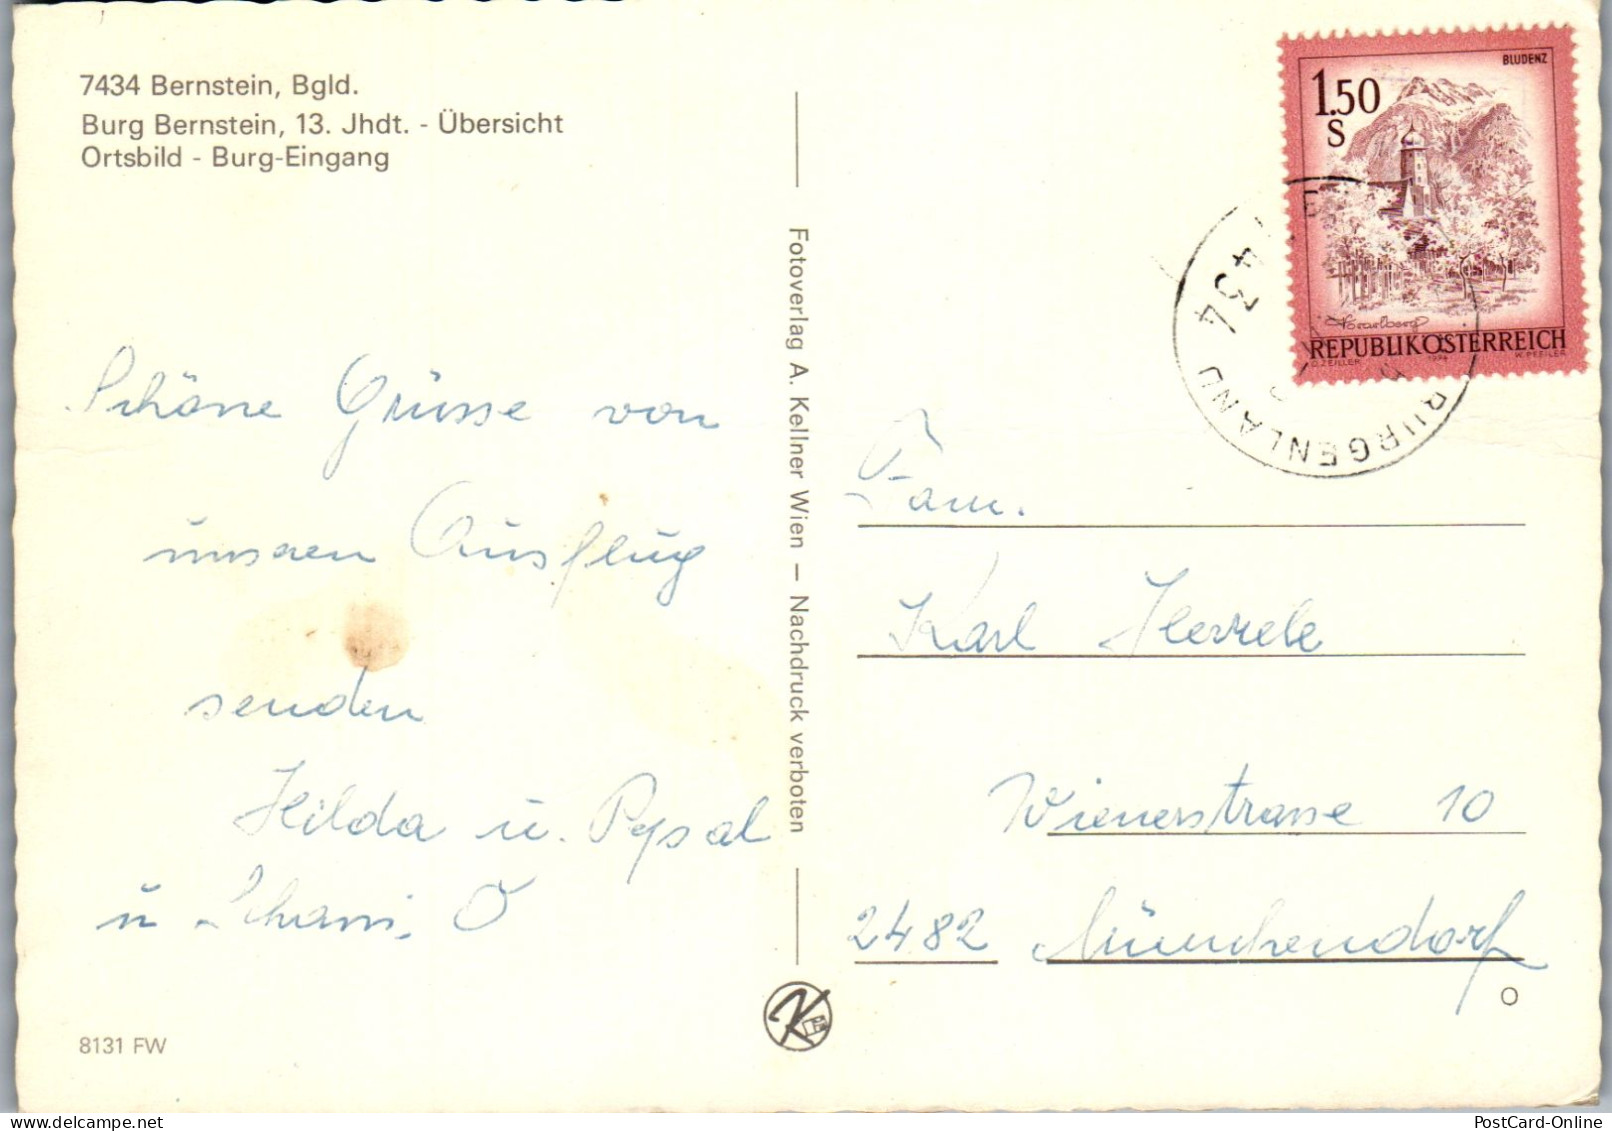 7434 Bernstein, Bgld.
Burg Bernstein, 13. Jhdt. - Übersicht
Ortsbild - Burg-Eingang
Schöne Grüsse von
unseren Ausflug
senden
Hilda u.
u. Schani.
8131 FW
Fotoverlag A. Kellner Wien – Nachdruck verboten
BLUDENZ
1.50
S
Vorarlberg
REPUBLIK ÖSTERREICH
O. ZEILLER 1974 W. PFEILER
434
BURGENLAND
Fam.
Karl
Wienerstrasse 10
2482 Münchendorf
PostCard-Online